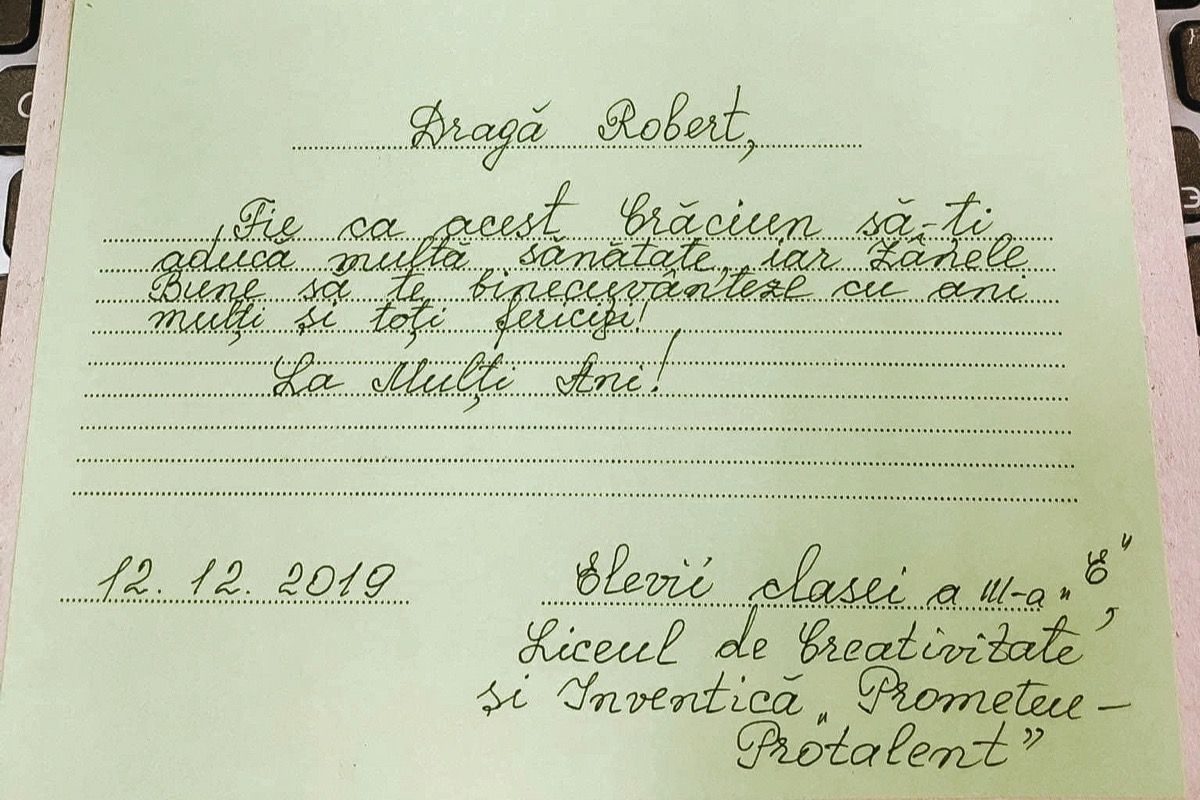 Dragă Robert,
Fie ca acest Crăciun să-ti
aducă multă sănătate, iar Zânele
Bune să te binecuvânteze cu ani
mulți și toți fericiți!
La Mulți Ani!
12. 12. 2019
Elevii clasei a III-a "E",
Liceul de Creativitate
și Inventică „Prometeu-
Protalent”